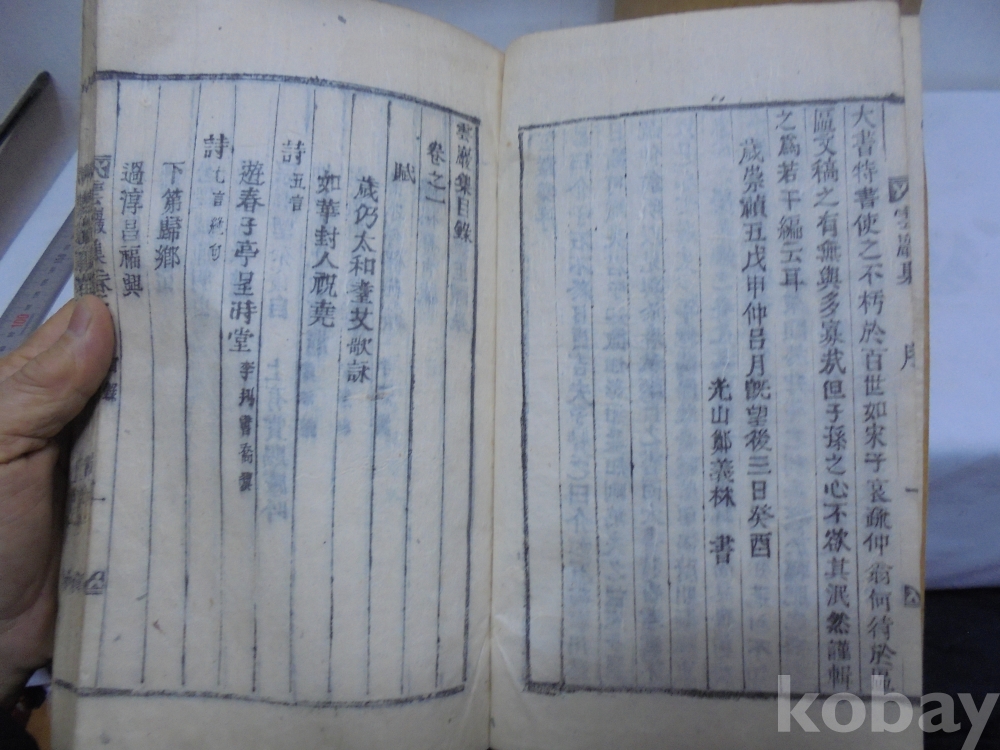 大書特書使之不朽於百世如宋子哀疏仲翁何待於區
區文稿之有無與多寡哉但子孫之心不欲其泯然謹輯
之爲若干編云耳
歲崇禎五戊申仲呂月旣望後三日癸酉
光山鄭義林 書
序
一
雲巖集目錄
卷之一
賦
歲仍太和耋艾歌詠
如華封人祝堯
詩 五言
遊春子亭呈時堂
詩 七言絶句
下第歸鄕
過淳昌福興
雲巖集卷之一
一
kobay